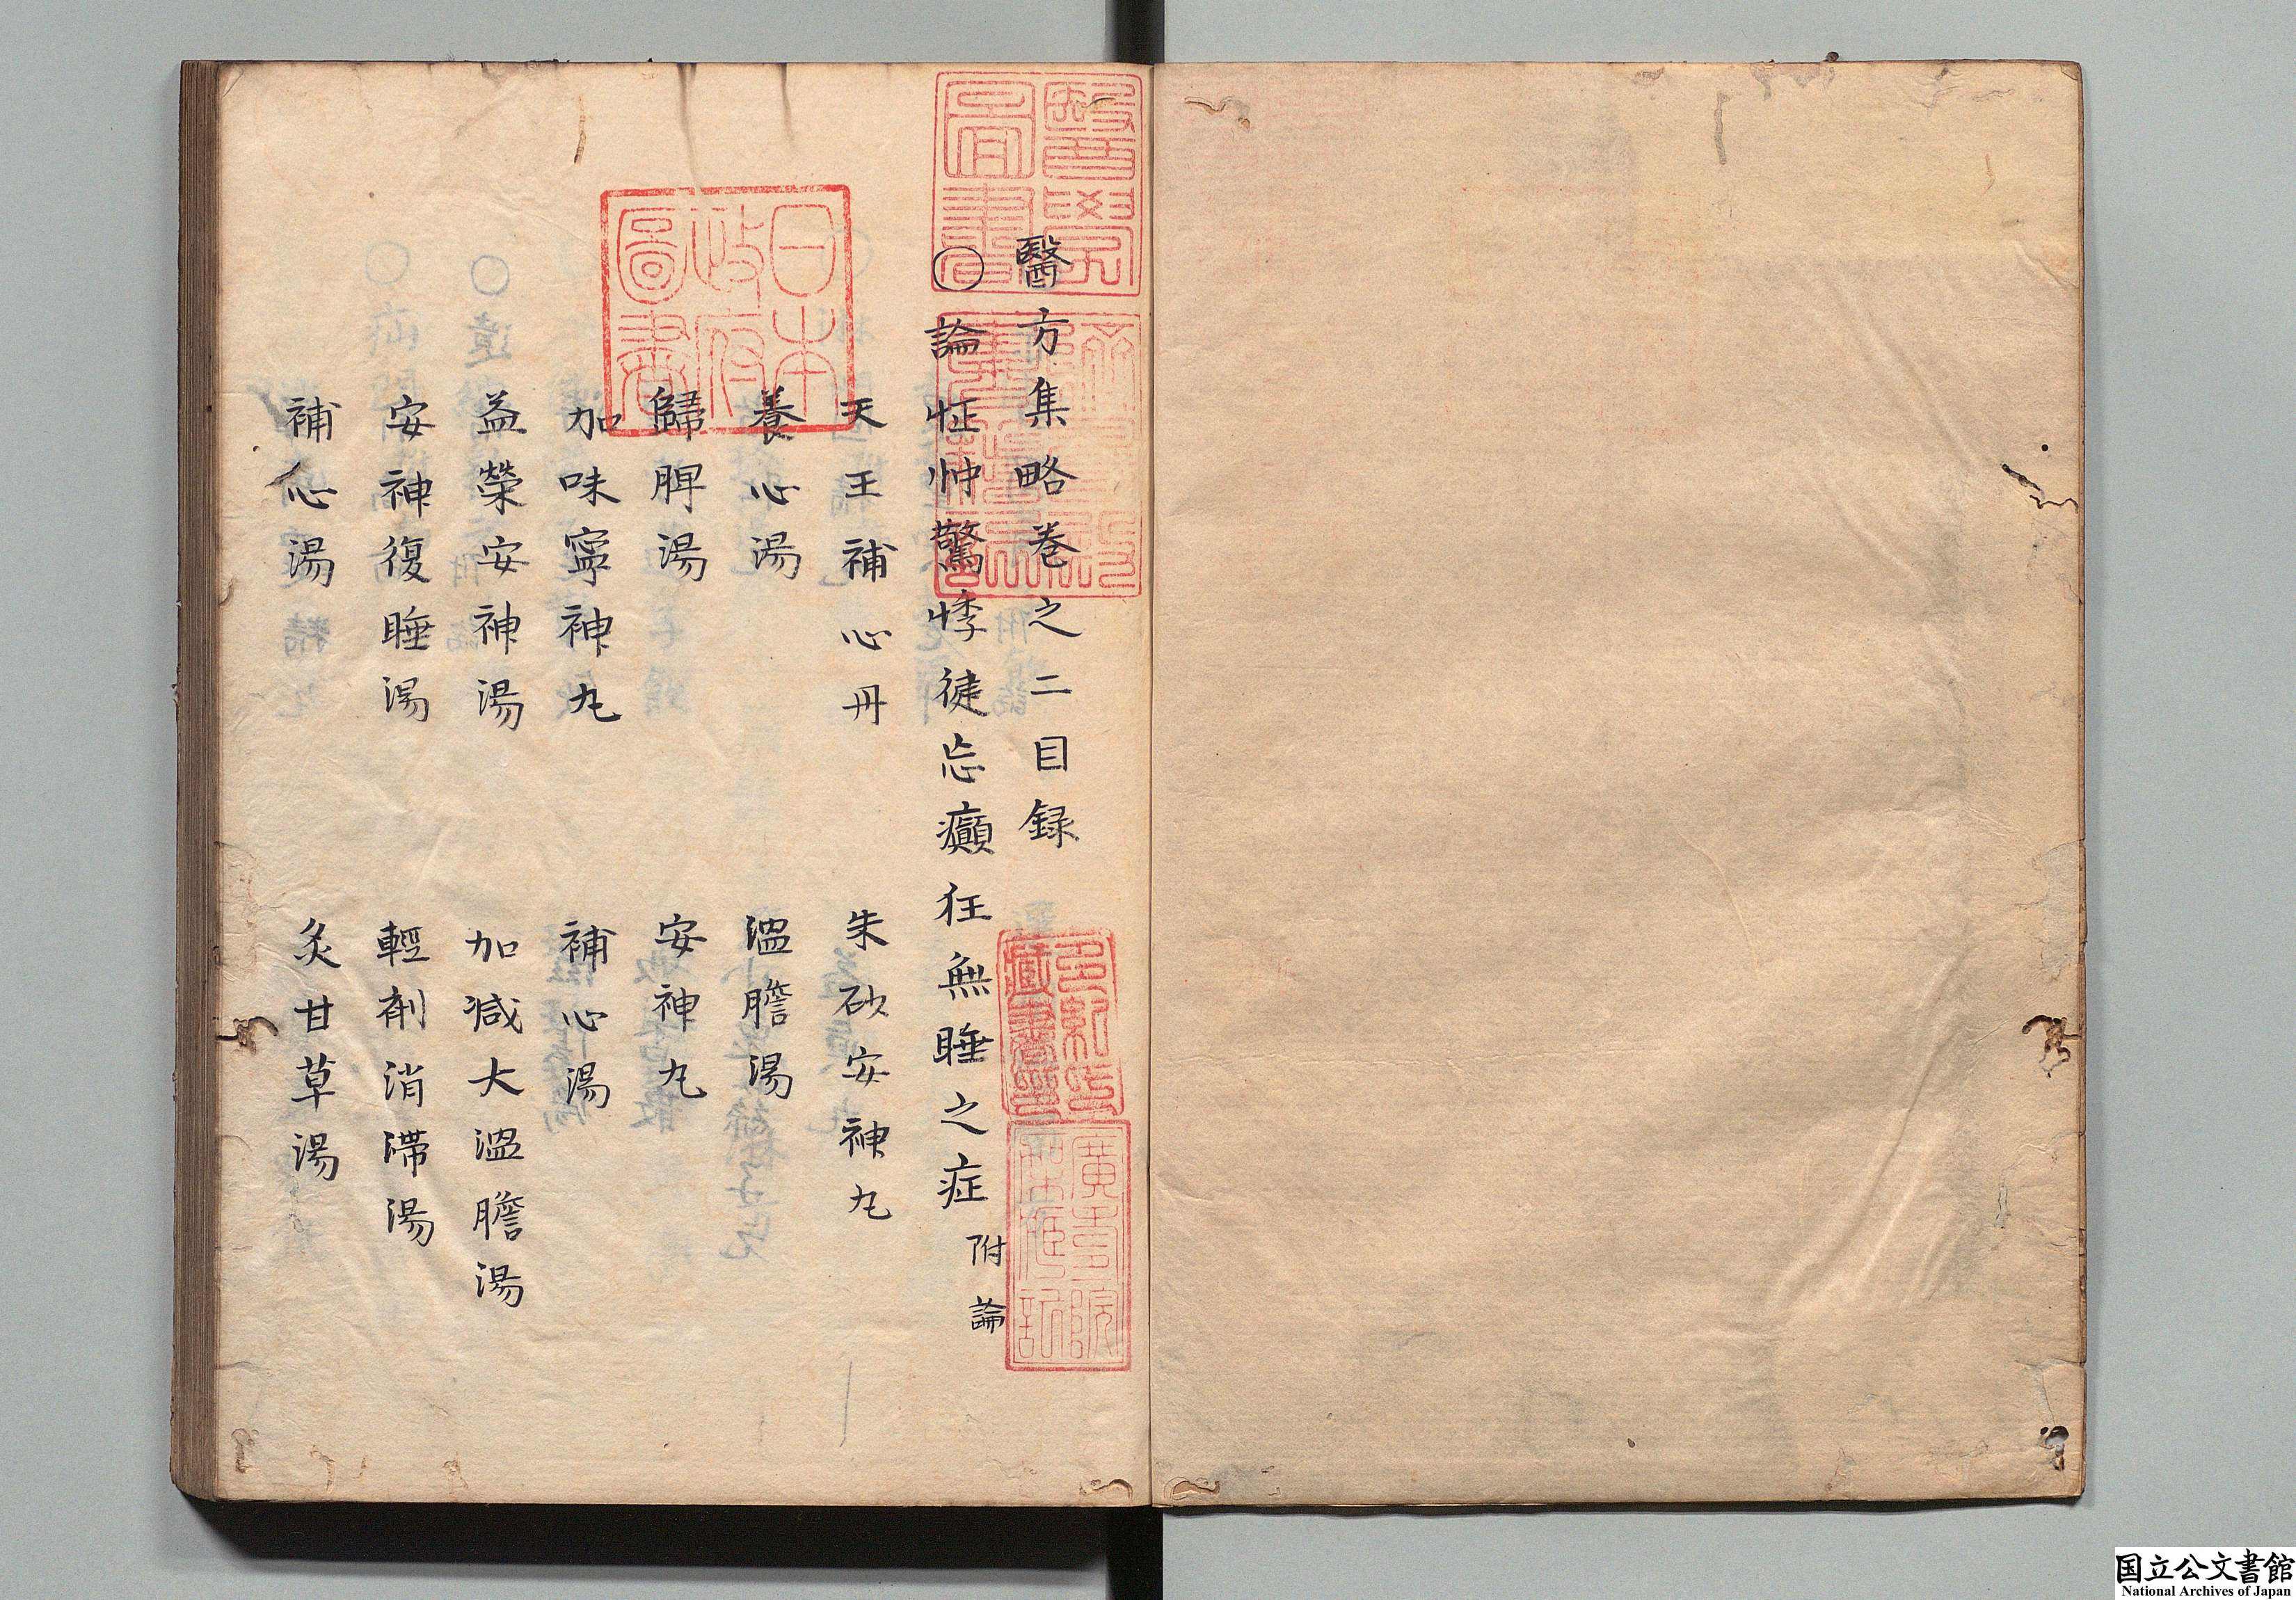 醫方集略卷之二目録
〇論怔忡驚悸徤忘癲狂無睡之症 附論
天王補心丹 朱砂安神丸
養心湯 溫膽湯
歸脾湯 安神丸
加味寧神丸 補心湯
益榮安神湯 加減大溫膽湯
安神復睡湯 輕劑消滯湯
補心湯 炙甘草湯
醫學圖書
日本政府圖書
多紀氏藏書印
廣壽院
国立公文書館
National Archives of Japan